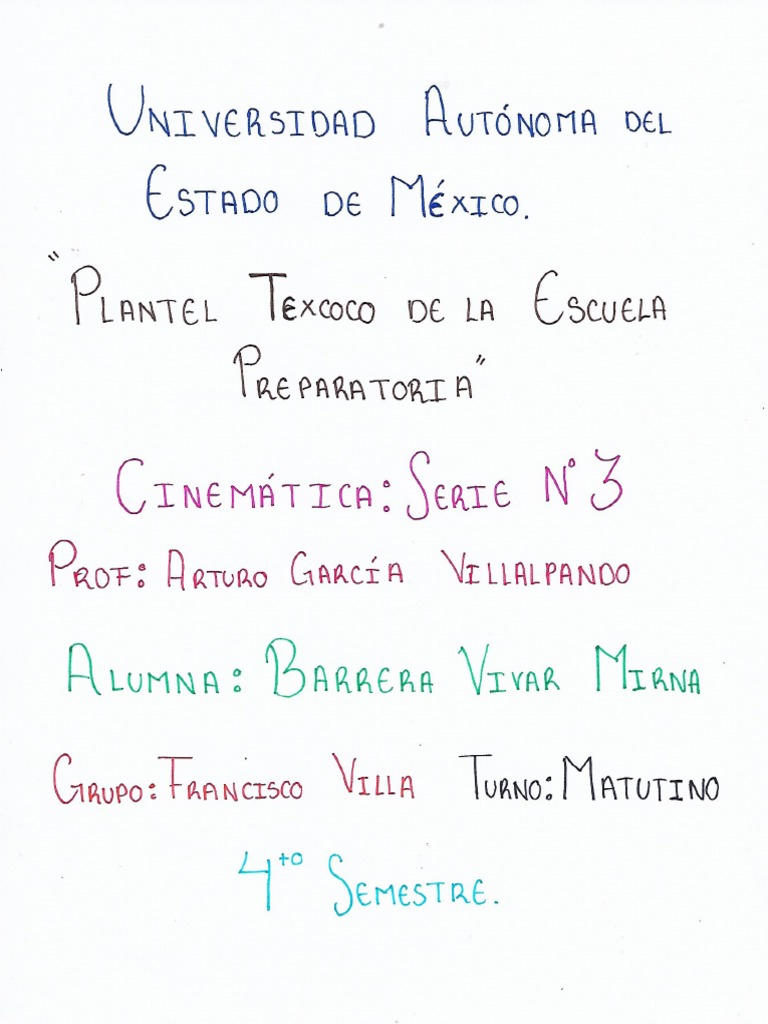 UNIVERSIDAD AUTÓNOMA DEL
ESTADO DE MÉXICO.
"PLANTEL TEXCOCO DE LA ESCUELA
PREPARATORIA"
CINEMÁTICA: SERIE N° 3
PROF: ARTURO GARCÍA VILLALPANDO
ALUMNA: BARRERA VIVAR MIRNA
GRUPO: FRANCISCO VILLA TURNO: MATUTINO
4to SEMESTRE.